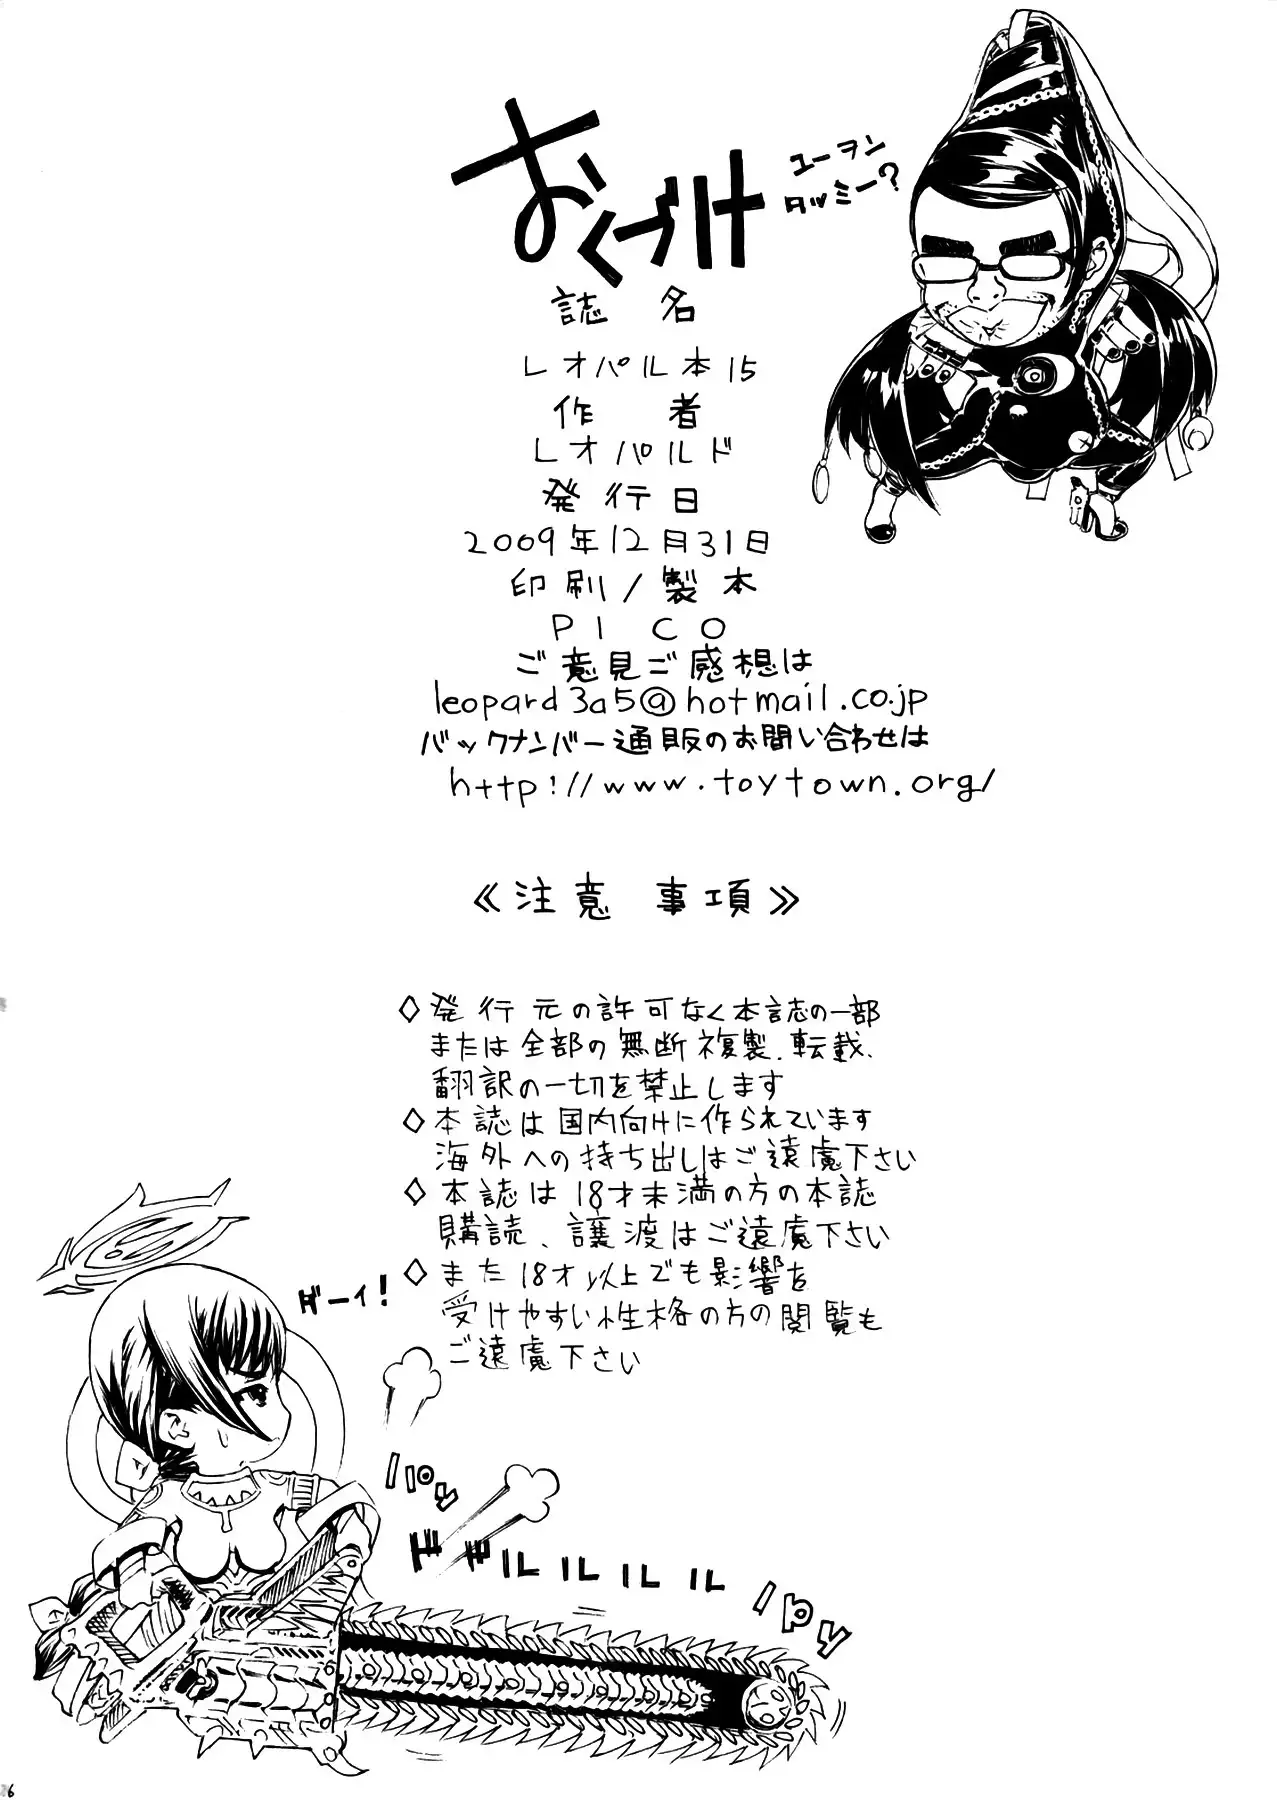 おくづけ
ユーヲン
タッミー?
誌 名
レオパル本15
作 者
レオパルド
発行日
2009年12月31日
印刷/製本
PICO
ご意見ご感想は
leopard3a5@hotmail.co.jp
バックナンバー通販のお問い合わせは
http://www.toytown.org/
《注意 事項》
◇発行元の許可なく本誌の一部
または全部の無断複製、転載、
翻訳の一切を禁止します
◇本誌は国内向けに作られています
海外への持ち出しはご遠慮下さい
◇本誌は18才未満の方の本誌
購読、譲渡はご遠慮下さい
◇また18才以上でも影響を
受けやすい性格の方の閲覧も
ご遠慮下さい
ダーィ!
パゥ
ドドルルルル
パゥ
6